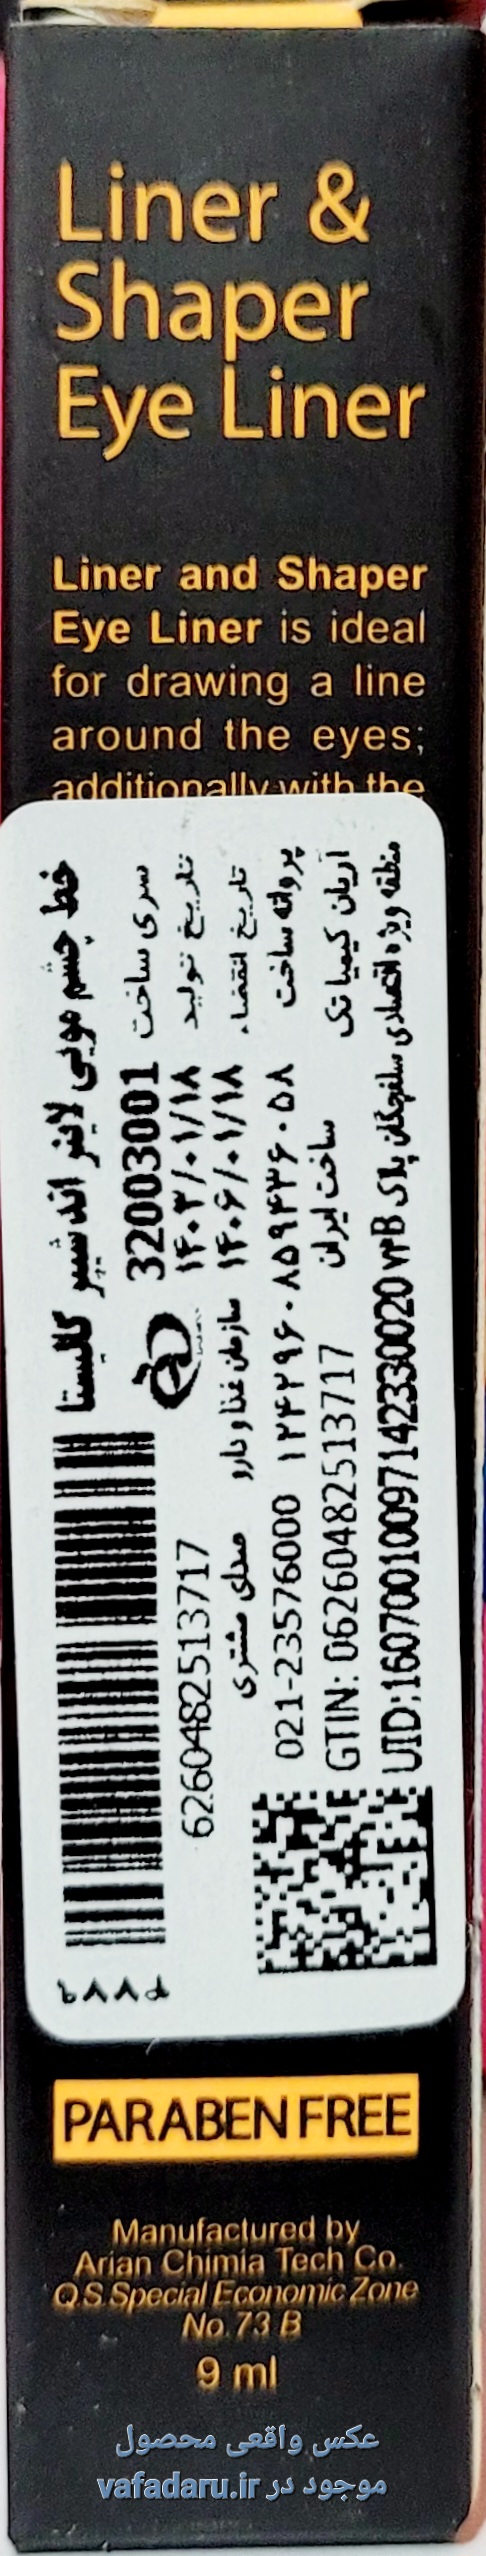 Liner &
Shaper
Eye Liner
Liner and Shaper
Eye Liner is ideal
for drawing a line
around the eyes;
additionally with the
خط چشم مویی لاینر اند شیپر کالیستا
سری ساخت 32003001
تاریخ تولید ۱۴۰۳/۰۱/۱۸
تاریخ انقضاء ۱۴۰۶/۰۱/۱۸
سازمان غذا و دارو
پروانه ساخت ۱۲۴۲۹۶۰۸۵۹۴۳۶۰۵۸
آریان کیمیا تک ساخت ایران
منطقه ویژه اقتصادی سلفچگان پلاک ۷۳B
6260482513717
صدای مشتری
021-23576000
GTIN: 06260482513717
UID:16070010097142330020
PARABEN FREE
Manufactured by
Arian Chimia Tech Co.
Q.S Special Economic Zone
No. 73 B
9 ml
عکس واقعی محصول
موجود در vafadaru.ir